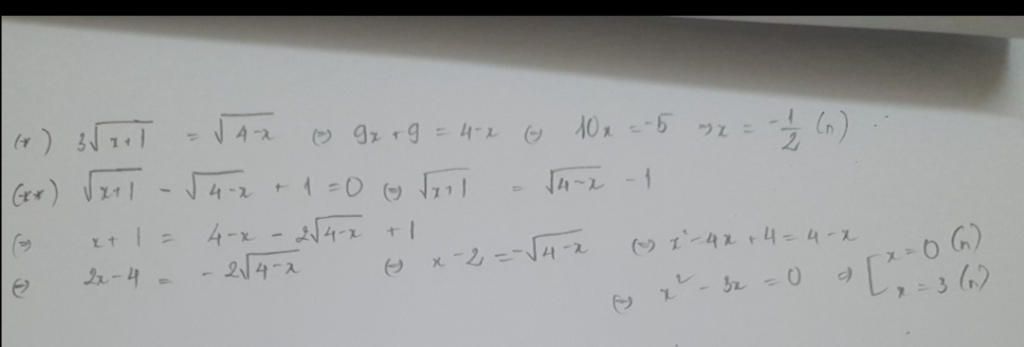 (*) 3√(x+1) = √(4-x) (=) 9x+9 = 4-x (=) 10x = -5 => x = -1/2 (n)
(**) √(x+1) - √(4-x) + 1 = 0 (=) √(x+1) = √(4-x) - 1
(=) x+1 = 4-x - 2√(4-x) + 1
(=) 2x-4 = -2√(4-x) (=) x-2 = -√(4-x) (=) x²-4x+4 = 4-x
(=) x² - 3x = 0 => [ x = 0 (n)
x = 3 (n)